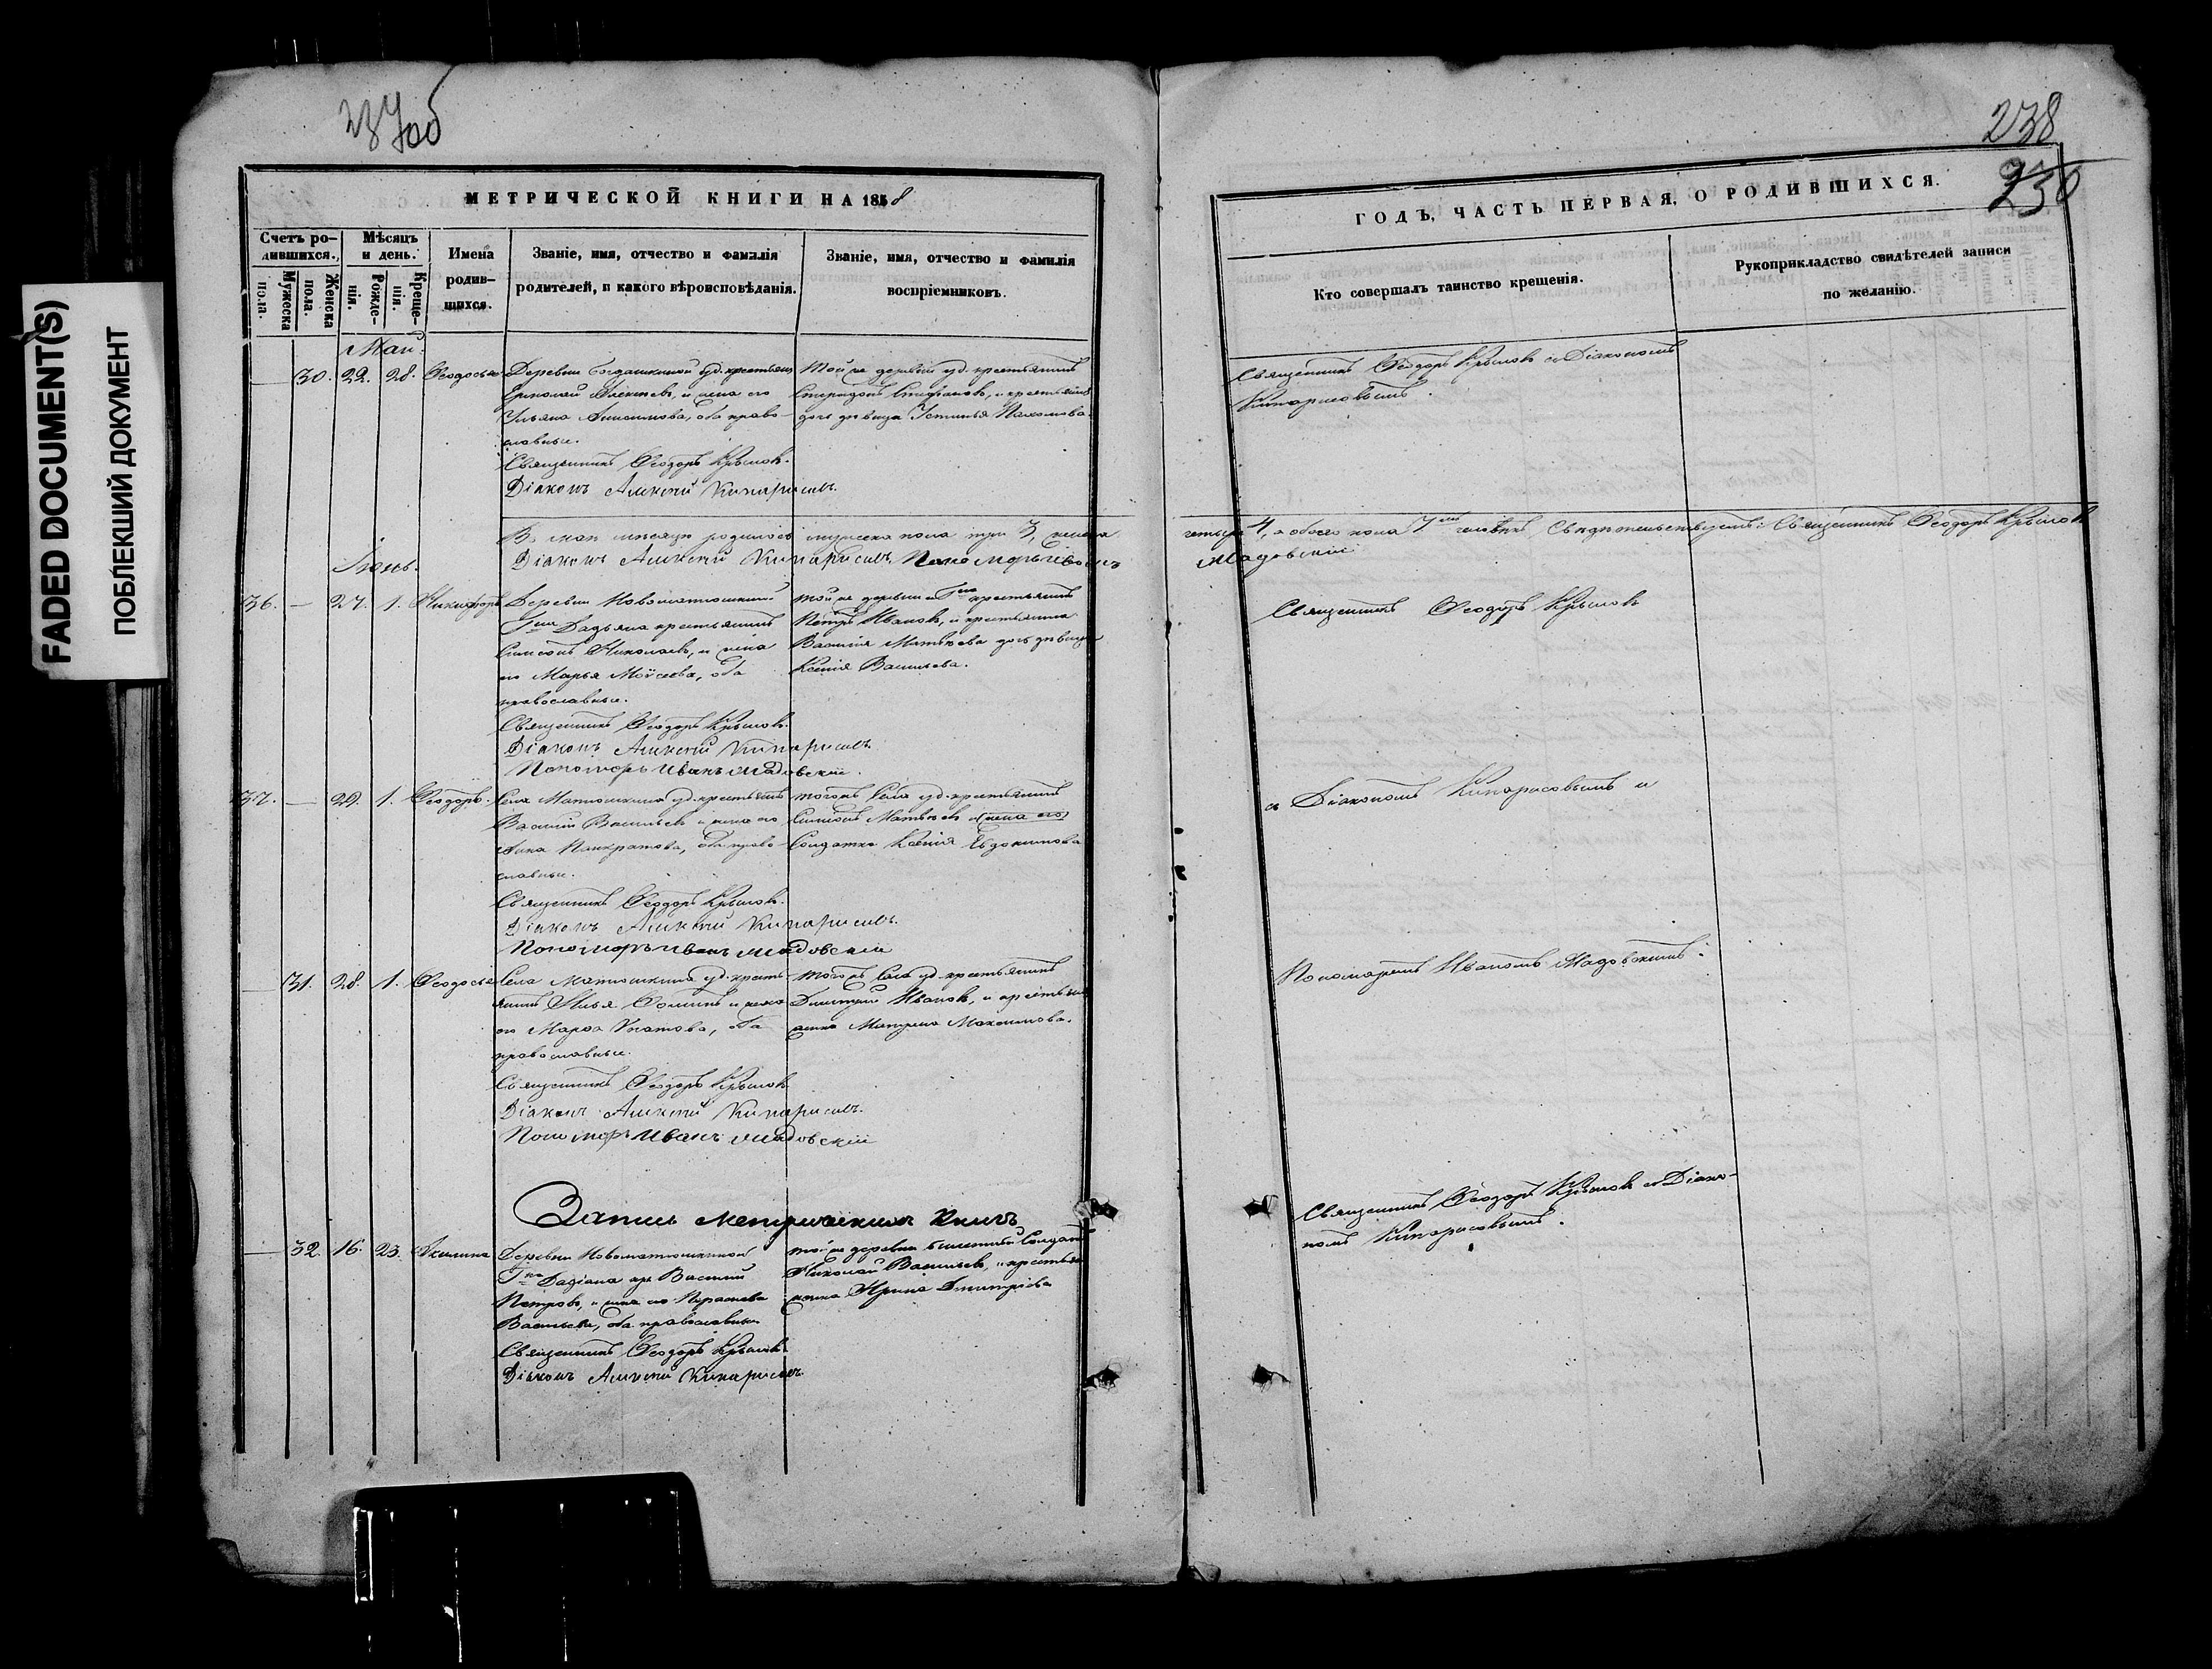 FADED DOCUMENT(S)
ПОБЛЕКШИЙ ДОКУМЕНТ
237об
238
230
МЕТРИЧЕСКОЙ КНИГИ НА 1858
Счетъ ро-
дившихся.
Мужеска
пола.
Женска
пола.
Мѣсяцъ
и день.
Рожде-
нія.
Креще-
нія.
Имена
родив-
шихся.
Званіе, имя, отчество и фамилія
родителей, и какого вѣроисповѣданія.
Званіе, имя, отчество и фамилія
воспріемниковъ.
Май.
30. 22. 28. Ѳеодосья
Деревни Богдашкиной уд. крестьян
Алексѣевъ, и жена его
Ульяна, оба право-
славные.
Священникъ Ѳеодоръ Крыловъ.
Діаконъ Алексѣй Кипарисовъ.
Той же деревни уд. крестьянинъ
Спиридонъ Стефановъ, и крестьянина
дочь дѣвица Устинья Пахомова.
В маѣ мѣсяцѣ родилось мужеска пола три 3, женска
Діаконъ Алексѣй Кипарисовъ. Пономорь Иванъ
Іюнь.
36. — 27. 1. Никифоръ
Деревни Новоматюшкиной
Гна Дадьяна крестьянинъ
Симеонъ Николаевъ, и жена
его Марья Моѵсеева, оба
православные.
Священникъ Ѳеодоръ Крыловъ.
Діаконъ Алексѣй Кипарисовъ.
Пономорь Иванъ Мадовскій.
той же деревни и Гна крестьянинъ
Петръ Ивановъ, и крестьянина
Василія Матвѣева дочь дѣвица
Ксенія Васильева.
37. — 29. 1. Ѳеодоръ.
Села Матюшкина уд. крестьянинъ
Василій Васильевъ и жена его
Анна Панкратова, оба право-
славные.
Священникъ Ѳеодоръ Крыловъ.
Діаконъ Алексѣй Кипарисовъ.
Пономорь Иванъ Мадовскій
тогожъ Села уд. крестьянинъ
Симеонъ Матвѣевъ и (жена его)
Солдатка Ксенія Евдокимова
31. 28. 1. Ѳеодосья
Села Матюшкина уд. кресть-
янинъ Илья Ѳоминъ и жена
его Марѳа Игнатова, оба
православные.
Священникъ Ѳеодоръ Крыловъ
Діаконъ Алексѣй Кипарисовъ.
Пономорь Иванъ Мадовскій
тогожъ Села уд. крестьянинъ
Дмитрій Ивановъ, и крестьян
анка Матрена Максимова.
Запись метрическихъ книгъ
32. 16. 23. Акилина
Деревни Новоматюшкиной
Гна Дадіана кр. Василій
Петровъ, и жена его Параскева
Васильева, оба православные
Священникъ Ѳеодоръ Крыловъ
Діаконъ Алексѣй Кипарисовъ.
той же деревни билетный Солдатъ
Николай Васильевъ, и крестья
янка Ирина Дмитріева
ГОДЪ, ЧАСТЬ ПЕРВАЯ, О РОДИВШИХСЯ.
Кто совершалъ таинство крещенія.
Рукоприкладство свидѣтелей записи
по желанію.
Священникъ Ѳеодоръ Крыловъ съ Діакономъ
Кипарисовымъ.
четыре 4, а обоего пола 7 человѣкъ Свидѣтельствуетъ: Священникъ Ѳеодоръ Крыловъ
Мадовскій
Священникъ Ѳеодоръ Крыловъ
съ Діакономъ Кипарисовымъ и
Пономаремъ Иваномъ Мадовскимъ.
Священникъ Ѳеодоръ Крыловъ съ Діако-
номъ Кипарисовымъ.